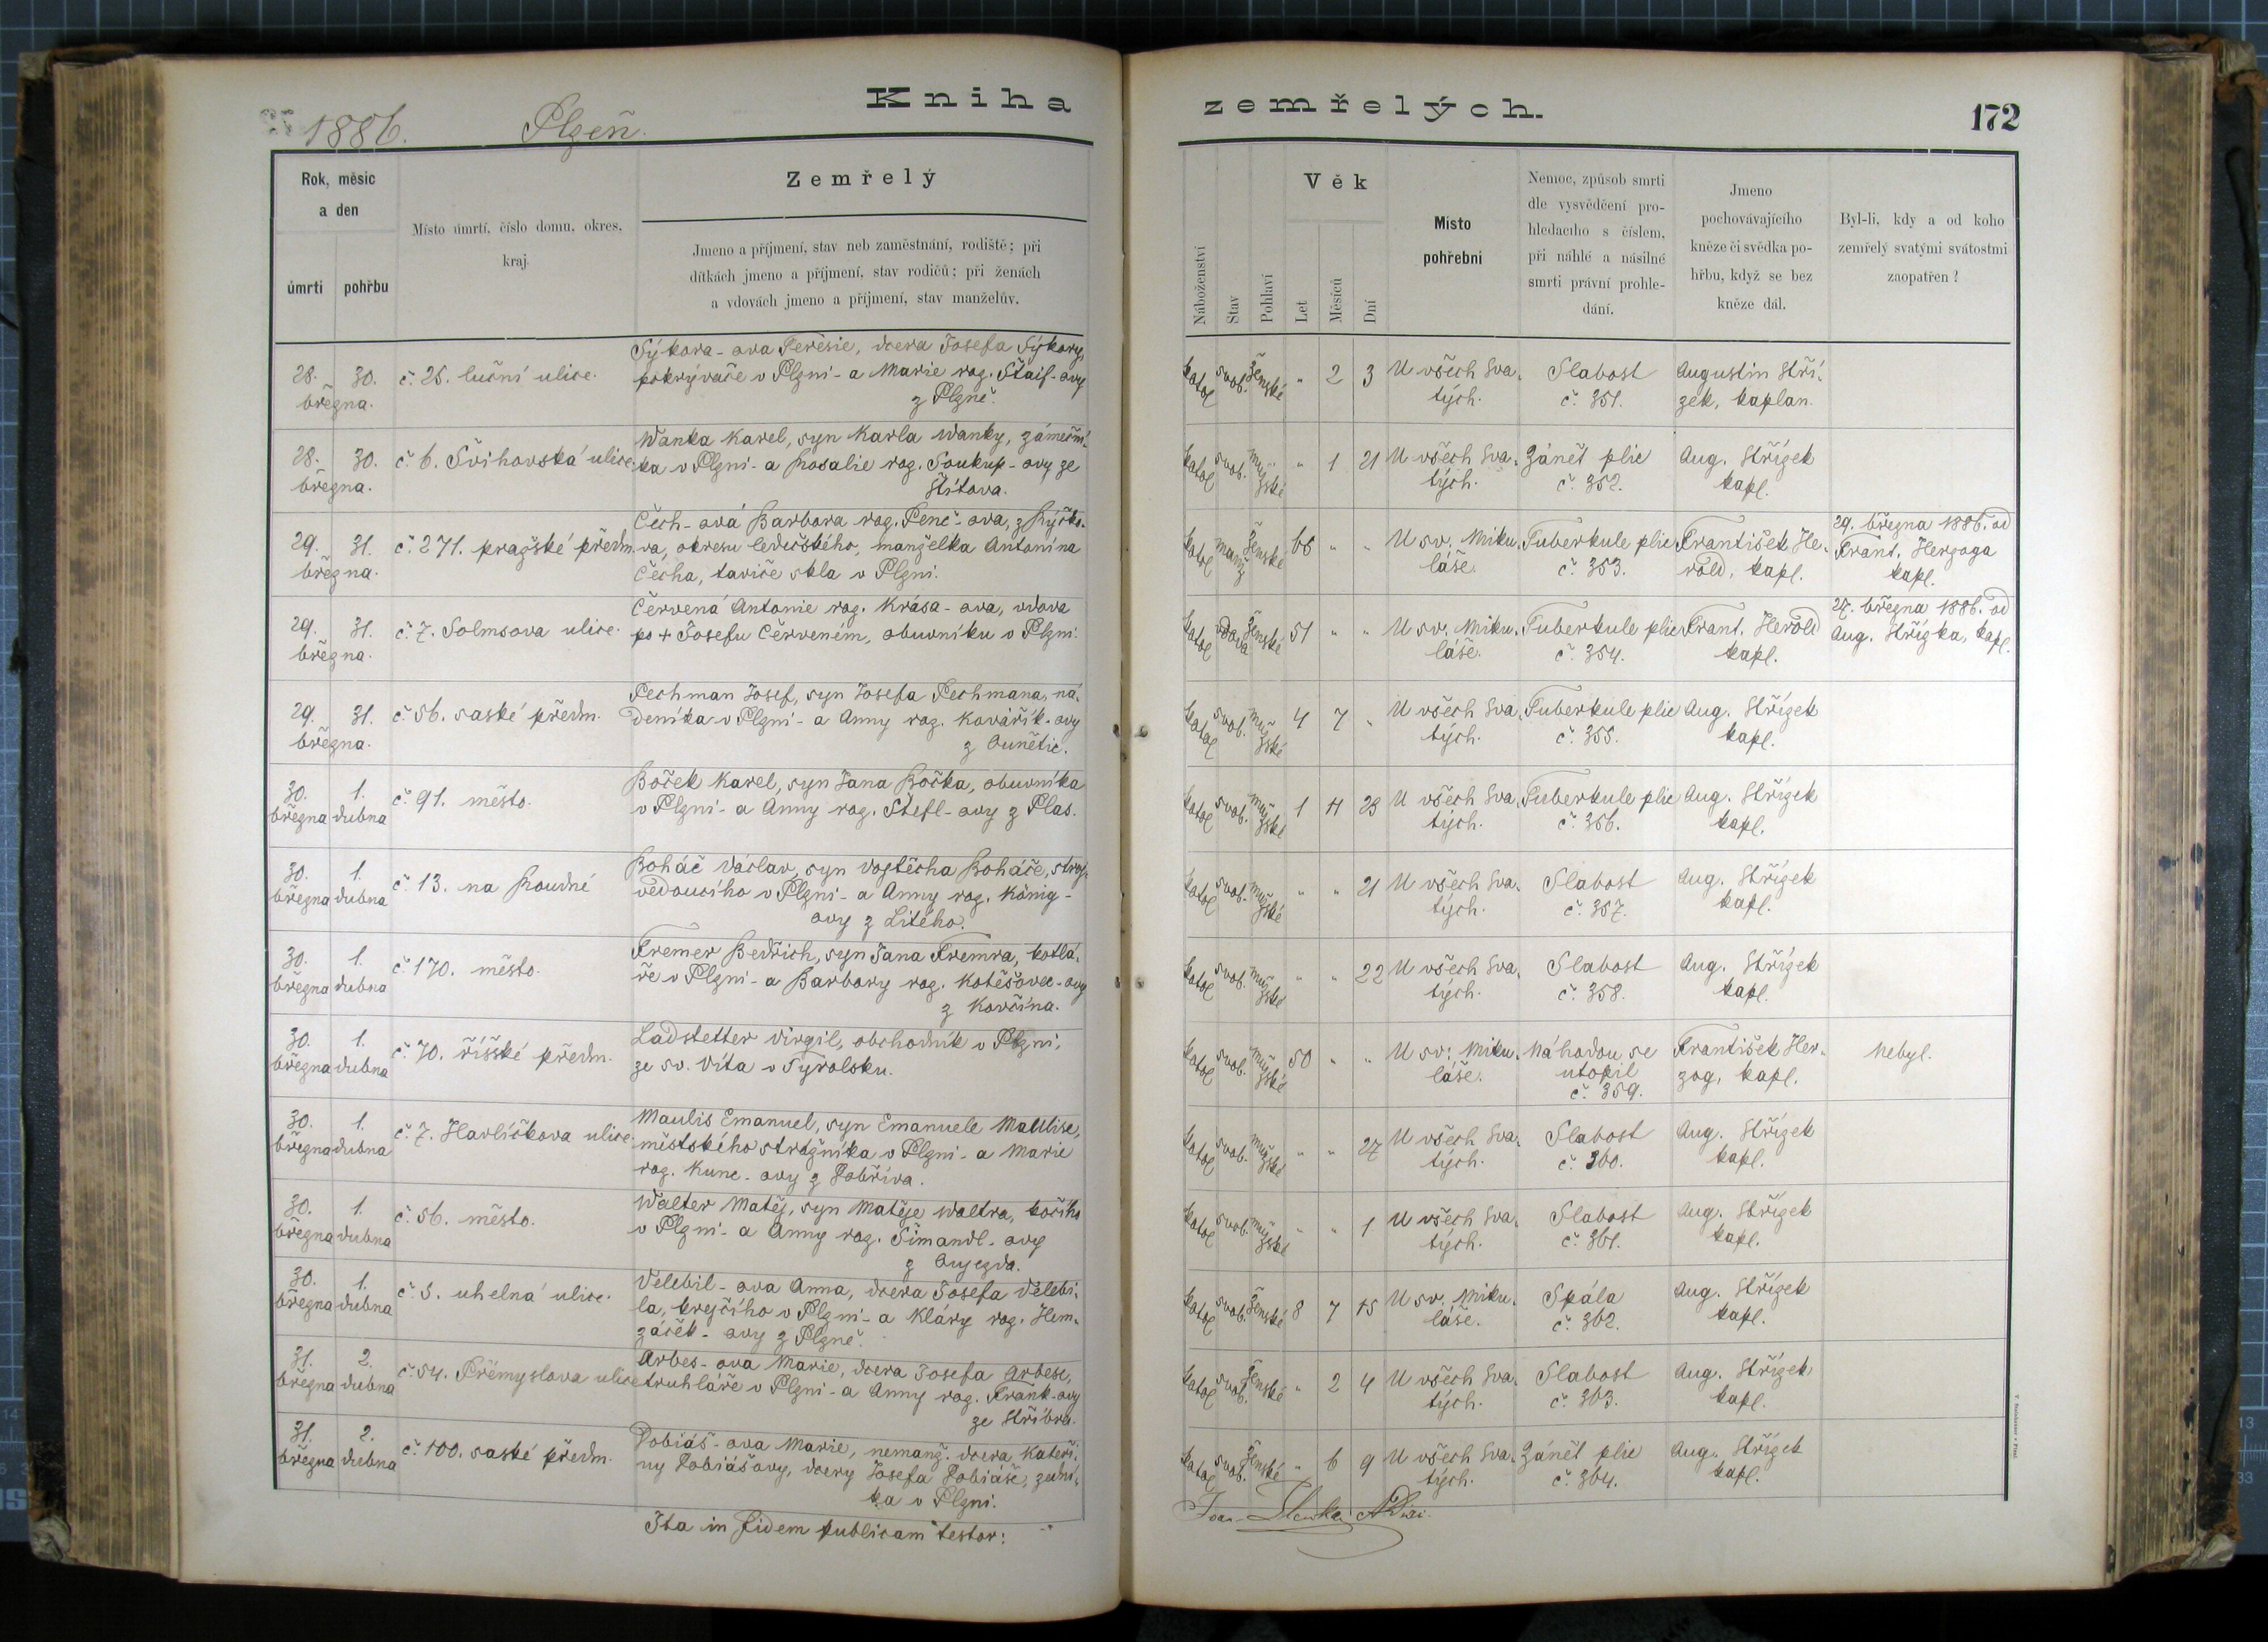 Kniha
zemřelých.
172
1886. Plzeň.
Rok, měsíc
a den
úmrtí
pohřbu
Místo úmrtí, číslo domu, okres,
kraj.
Zemřelý
Jmeno a příjmení, stav neb zaměstnání, rodiště; při
dítkách jmeno a příjmení, stav rodičů; při ženách
a vdovách jmeno a příjmení, stav manželův.
Náboženství
Stav
Pohlaví
Věk
Let
Měsíců
Dní
Místo
pohřební
Nemoc, způsob smrti
dle vysvědčení pro-
hledacího s číslem,
při náhlé a násilné
smrti právní prohle-
dání.
Jmeno
pochovávajícího
kněze či svědka po-
hřbu, když se bez
kněze dál.
Byl-li, kdy a od koho
zemřelý svatými svátostmi
zaopatřen?
28. 30. března.
č. 28. luční ulice.
Sýkora-ova Teresie, dcera Josefa Sýkory,
pokrývače v Plzni - a Marie roz. Štaif-ovy
z Plzně.
katol. svob. ženské " 2 3
U všech Sva-
tých.
Slabost
č. 351.
Augustin Stří-
zek, kaplan.
28. 30. března.
č. 6. Švihovská ulice.
Wanka Karel, syn Karla Wanky, zámeční-
ka v Plzni - a Rosalie roz. Soukup-ovy ze
Štítova.
katol. svob. mužské " 1 21
U všech Sva-
tých.
Zánět plic
č. 352.
Aug. Střízek
kapl.
29. 31. března.
č. 271. pražské předm.
Čech-ová Barbora roz. Penč-ova, z Rýčko-
va, okresu ledečského, manželka Antonína
Čecha, taviče skla v Plzni.
katol. manž. ženské 66 " "
U sv. Miku-
láše.
Tuberkule plic
č. 353.
František He-
rold, kapl.
29. března 1886. od
Frant. Herzoga
kapl.
29. 31. března.
č. 7. Solmsova ulice.
Červená Antonie roz. Krása-ova, vdova
po + Josefu Červeném, obuvníku v Plzni.
katol. vdova ženské 51 " "
U sv. Miku-
láše.
Tuberkule plic
č. 354.
Frant. Herold
kapl.
27. března 1886. od
Aug. Střízka, kapl.
29. 31. března.
č. 56. saské předm.
Pechman Josef, syn Josefa Pechmana, ná-
deníka v Plzni - a Anny roz. Kovářík-ovy
z Ounětic.
katol. svob. mužské 4 7 "
U všech Sva-
tých.
Tuberkule plic
č. 355.
Aug. Střízek
kapl.
30. března 1. dubna
č. 91. město.
Boček Karel, syn Jana Bočka, obuvníka
v Plzni - a Anny roz. Štefl-ovy z Plas.
katol. svob. mužské 1 11 23
U všech Sva-
tých.
Tuberkule plic
č. 356.
Aug. Střízek
kapl.
30. března 1. dubna
č. 13. na Roudné
Boháč Václav, syn Vojtěcha Boháče, stroj-
vedoucího v Plzni - a Anny roz. König-
ovy z Litého.
katol. svob. mužské " " 21
U všech Sva-
tých.
Slabost
č. 357.
Aug. Střízek
kapl.
30. března 1. dubna
č. 170. město.
Fremer Bedřich, syn Jana Fremra, kotlá-
ře v Plzni - a Barbory roz. Kotěšovec-ovy
z Kovčína.
katol. svob. mužské " " 22
U všech Sva-
tých.
Slabost
č. 358.
Aug. Střízek
kapl.
30. března 1. dubna
č. 70. říšské předm.
Ladstetter Virgil, obchodník v Plzni,
ze sv. Víta v Tyrolsku.
katol. svob. mužské 50 " "
U sv. Miku-
láše.
Náhodou se
utopil
č. 359.
František Her-
zog, kapl.
Nebyl.
30. března 1. dubna
č. 7. Havlíčkova ulice.
Maulis Emanuel, syn Emanuele Maulise,
městského strážníka v Plzni - a Marie
roz. Kunc-ovy z Dobříva.
katol. svob. mužské " " 27
U všech Sva-
tých.
Slabost
č. 360.
Aug. Střízek
kapl.
30. března 1. dubna
č. 56. město.
Walter Matěj, syn Matěje Waltra, kočího
v Plzni - a Anny roz. Šimandl-ovy
z Oujezda.
katol. svob. mužské " " 1
U všech Sva-
tých.
Slabost
č. 361.
Aug. Střízek
kapl.
30. března 1. dubna
č. 5. uhelná ulice.
Velebil-ova Anna, dcera Josefa Velebi-
la, krejčího v Plzni - a Kláry roz. Hem-
záček-ovy z Plzně.
katol. svob. ženské 8 7 15
U sv. Miku-
láše.
Spála
č. 362.
Aug. Střízek
kapl.
31. března 2. dubna
č. 54. Přemyslova ulice
Arbes-ova Marie, dcera Josefa Arbesa,
truhláře v Plzni - a Anny roz. Frank-ovy
ze Stříbra.
katol. svob. ženské " 2 4
U všech Sva-
tých.
Slabost
č. 363.
Aug. Střízek
kapl.
31. března 2. dubna
č. 100. saské předm.
Tobiáš-ova Marie, nemanž. dcera Kateři-
ny Tobiášovy, dcery Josefa Tobiáše, zední-
ka v Plzni.
katol. svob. ženské " 6 9
U všech Sva-
tých.
Zánět plic
č. 364.
Aug. Střízek
kapl.
Ita in fidem publicam testor: